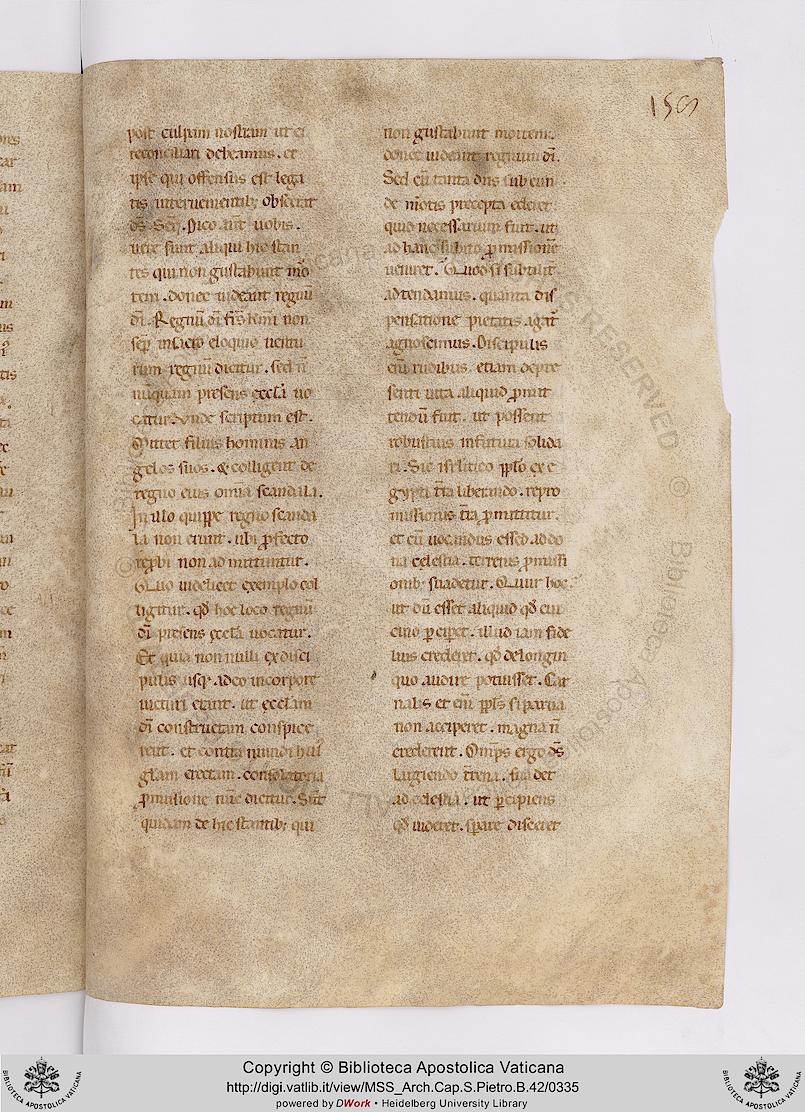 159
post culpam nostram ut ei
reconciliari debeamus. et
ipse qui offensus est lega
tis intervenientib; obsecrat
d̄s. Seq̄. Dico aut̄ uobis.
uere sunt aliqui hic stan
tes qui non gustabunt mo
tem. donec uideant regnū
dī. Regnū dī frs̄ kmī non
sep̄ in sacro eloquio uentu
rum regnū dicitur. sed n̄
nuquam presens ęccła uo
catur. Unde scriptum est.
Mittet filius hominis an
gelos suos. & colligent de
regno eius omīa scandala.
In illo quippe regno scanda
la non erunt. ubi ꝓfecto
rep̄bi non admittuntur.
Quo uidelicet exemplo col
ligitur. qd̄ hoc loco regnū
dī presens ęccła uocatur.
Et quia non nulli ex disci
pulis usq; adeo in corpore
uicturi erant. ut ęcclam
dī constructam conspice
rent. et contra mundi huī
głam erectam. consolatoria
ꝓmissione nunc dicitur. Sunt
quidam de hic stantib; qui
non gustabunt mortem.
donec uideant regnum dī.
Sed cū tanta dn̄s subeun
de mōtis precepta ederet
quid necessarium fuit. ut
ad hanc subito ꝓmissionē
ueniret. Quod si subtilit̄
adtendamus. quanta dis
pensatione pietatis agat̄
agnoscimus. Discipulis
eni rudibus. etiam de pre
senti uita aliquid ꝓmit
tendū fuit. ut possent
robustius in futura solida
ri. Sic isr̄litico ppl̄o ex e
gypti tr̄a liberando. repro
missionis tr̄a ꝓmittitur.
et cū uocandus esset ad do
na cęlestia. terrenis ꝓmissi
onib; suadetur. Quur hoc?
ut dū esset aliquid qd̄ e uici
cino ꝑciperet. illud iam fide
lius crederet. qd̄ de longin
quo audire potuisset. Car
nalis et enī ppl̄s si parua
non acciperet. magna n̄
crederent. Omp̄s ergo d̄s
largiendo tr̄ena. suadet
ad cęlestia. ut ꝑcipiens
qd̄ uideret. sp̄are disceret
Copyright © Biblioteca Apostolica Vaticana
http://digi.vatlib.it/view/MSS_Arch.Cap.S.Pietro.B.42/0335
powered by DWork • Heidelberg University Library
BIBLIOTECA APOSTOLICA VATICANA
BIBLIOTECA APOSTOLICA VATICANA